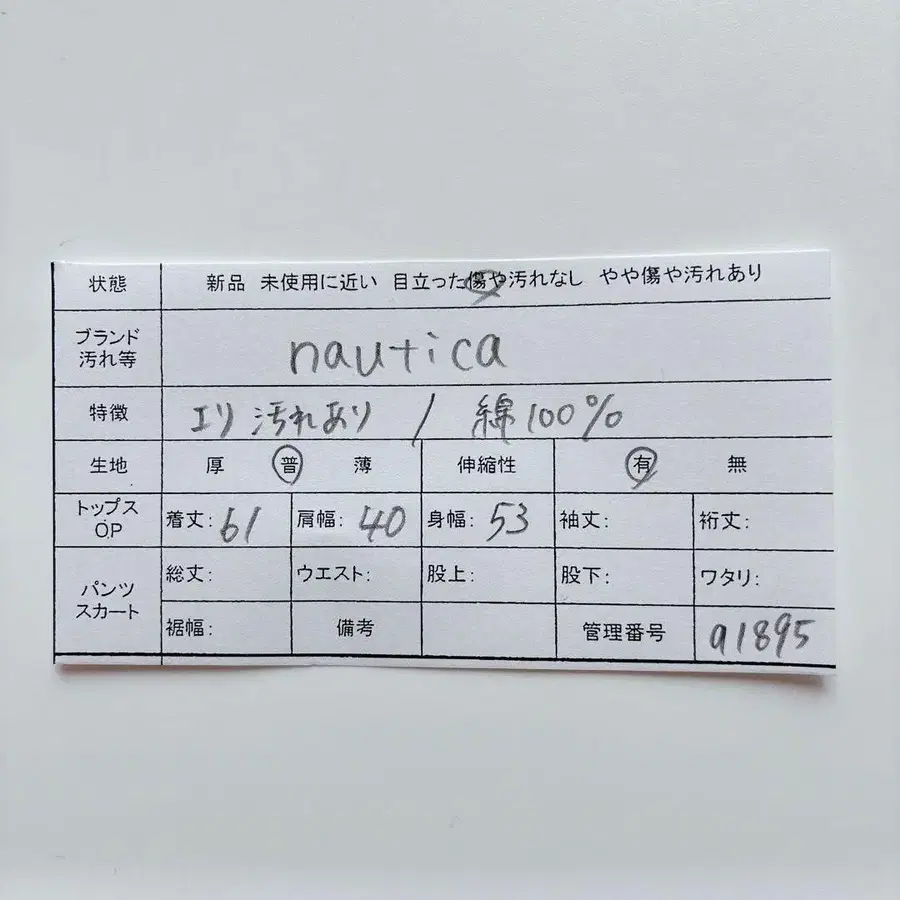 状態 新品 未使用に近い 目立った傷や汚れなし やや傷や汚れあり
ブランド
汚れ等 nautica
特徴 エリ 汚れあり / 綿100%
生地 厚 普 薄 伸縮性 有 無
トップス
O.P 着丈: 61 肩幅: 40 身幅: 53 袖丈: 裄丈:
パンツ
スカート 総丈: ウエスト: 股上: 股下: ワタリ:
裾幅: 備考 管理番号 a1895